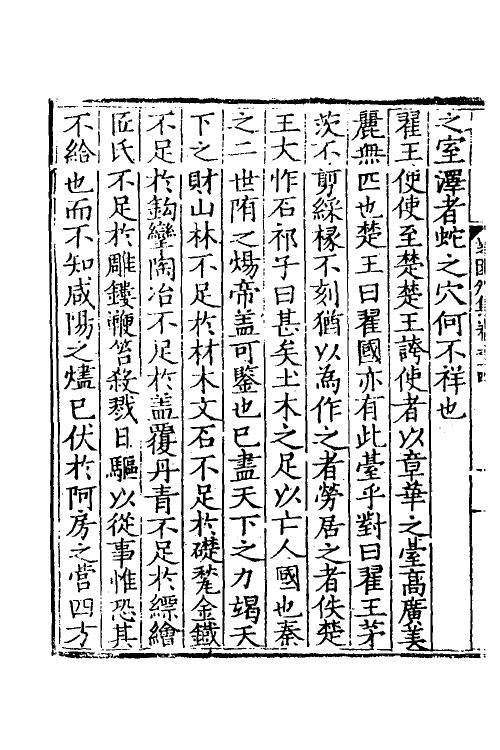 之室澤者蛇之穴何不祥也
翟王使使至楚楚王誇使者以章華之臺高廣美
麗無匹也楚王曰翟國亦有此臺乎對曰翟王茅
茨不剪綵椽不刻猶以為作之者勞居之者佚楚
王大怍石祁子曰甚矣土木之足以亡人國也秦
之二世隋之煬帝盖可鑒也已盡天下之力竭天
下之財山林不足於材木文石不足於礎甃金鐵
不足於鈎䜌陶冶不足於盖覆丹青不足於縹繪
匠氏不足於雕鏤鞭笞殺戮日驅以從事惟恐其
不給也而不知咸陽之燼已伏於阿房之營四方